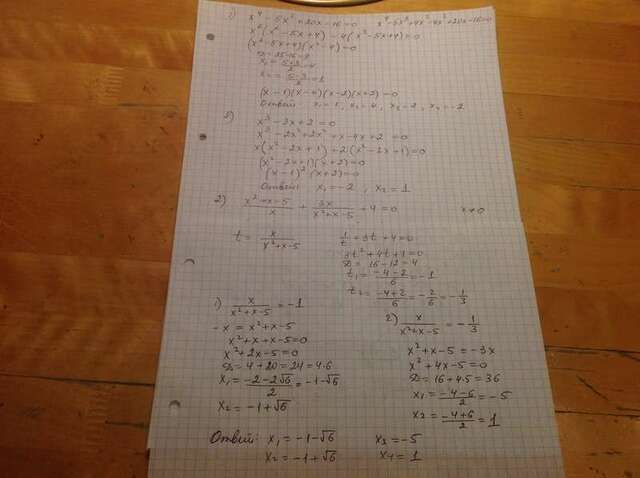 1) x⁴ - 5x³ + 20x - 16 = 0 x⁴ - 5x³ + 4x² - 4x² + 20x - 16 = 0
x²(x² - 5x + 4) - 4(x² - 5x + 4) = 0
(x² - 5x + 4)(x² - 4) = 0
D = 25 - 16 = 9
x₁ = (5+3)/2 = 4
x₂ = (5-3)/2 = 1
(x - 1)(x - 4)(x - 2)(x + 2) = 0
Ответ: x₁ = 1, x₂ = 4, x₃ = 2, x₄ = -2
3) x³ - 3x + 2 = 0
x³ - 2x² + 2x² + x - 4x + 2 = 0
x(x² - 2x + 1) + 2(x² - 2x + 1) = 0
(x² - 2x + 1)(x + 2) = 0
(x - 1)² (x + 2) = 0
Ответ: x₁ = -2, x₂ = 1
2) (x² + x - 5)/x + 3x/(x² + x - 5) + 4 = 0 x ≠ 0
t = x/(x² + x - 5) 1/t + 3t + 4 = 0
3t² + 4t + 1 = 0
D = 16 - 12 = 4
t₁ = (-4-2)/6 = -1
t₂ = (-4+2)/6 = -2/6 = -1/3
1) x/(x² + x - 5) = -1
-x = x² + x - 5
x² + x + x - 5 = 0
x² + 2x - 5 = 0
D = 4 + 20 = 24 = 4·6
x₁ = (-2-2√6)/2 = -1-√6
x₂ = -1+√6
2) x/(x² + x - 5) = -1/3
x² + x - 5 = -3x
x² + 4x - 5 = 0
D = 16 + 4·5 = 36
x₁ = (-4-6)/2 = -5
x₂ = (-4+6)/2 = 1
Ответ: x₁ = -1-√6 x₃ = -5
x₂ = -1+√6 x₄ = 1